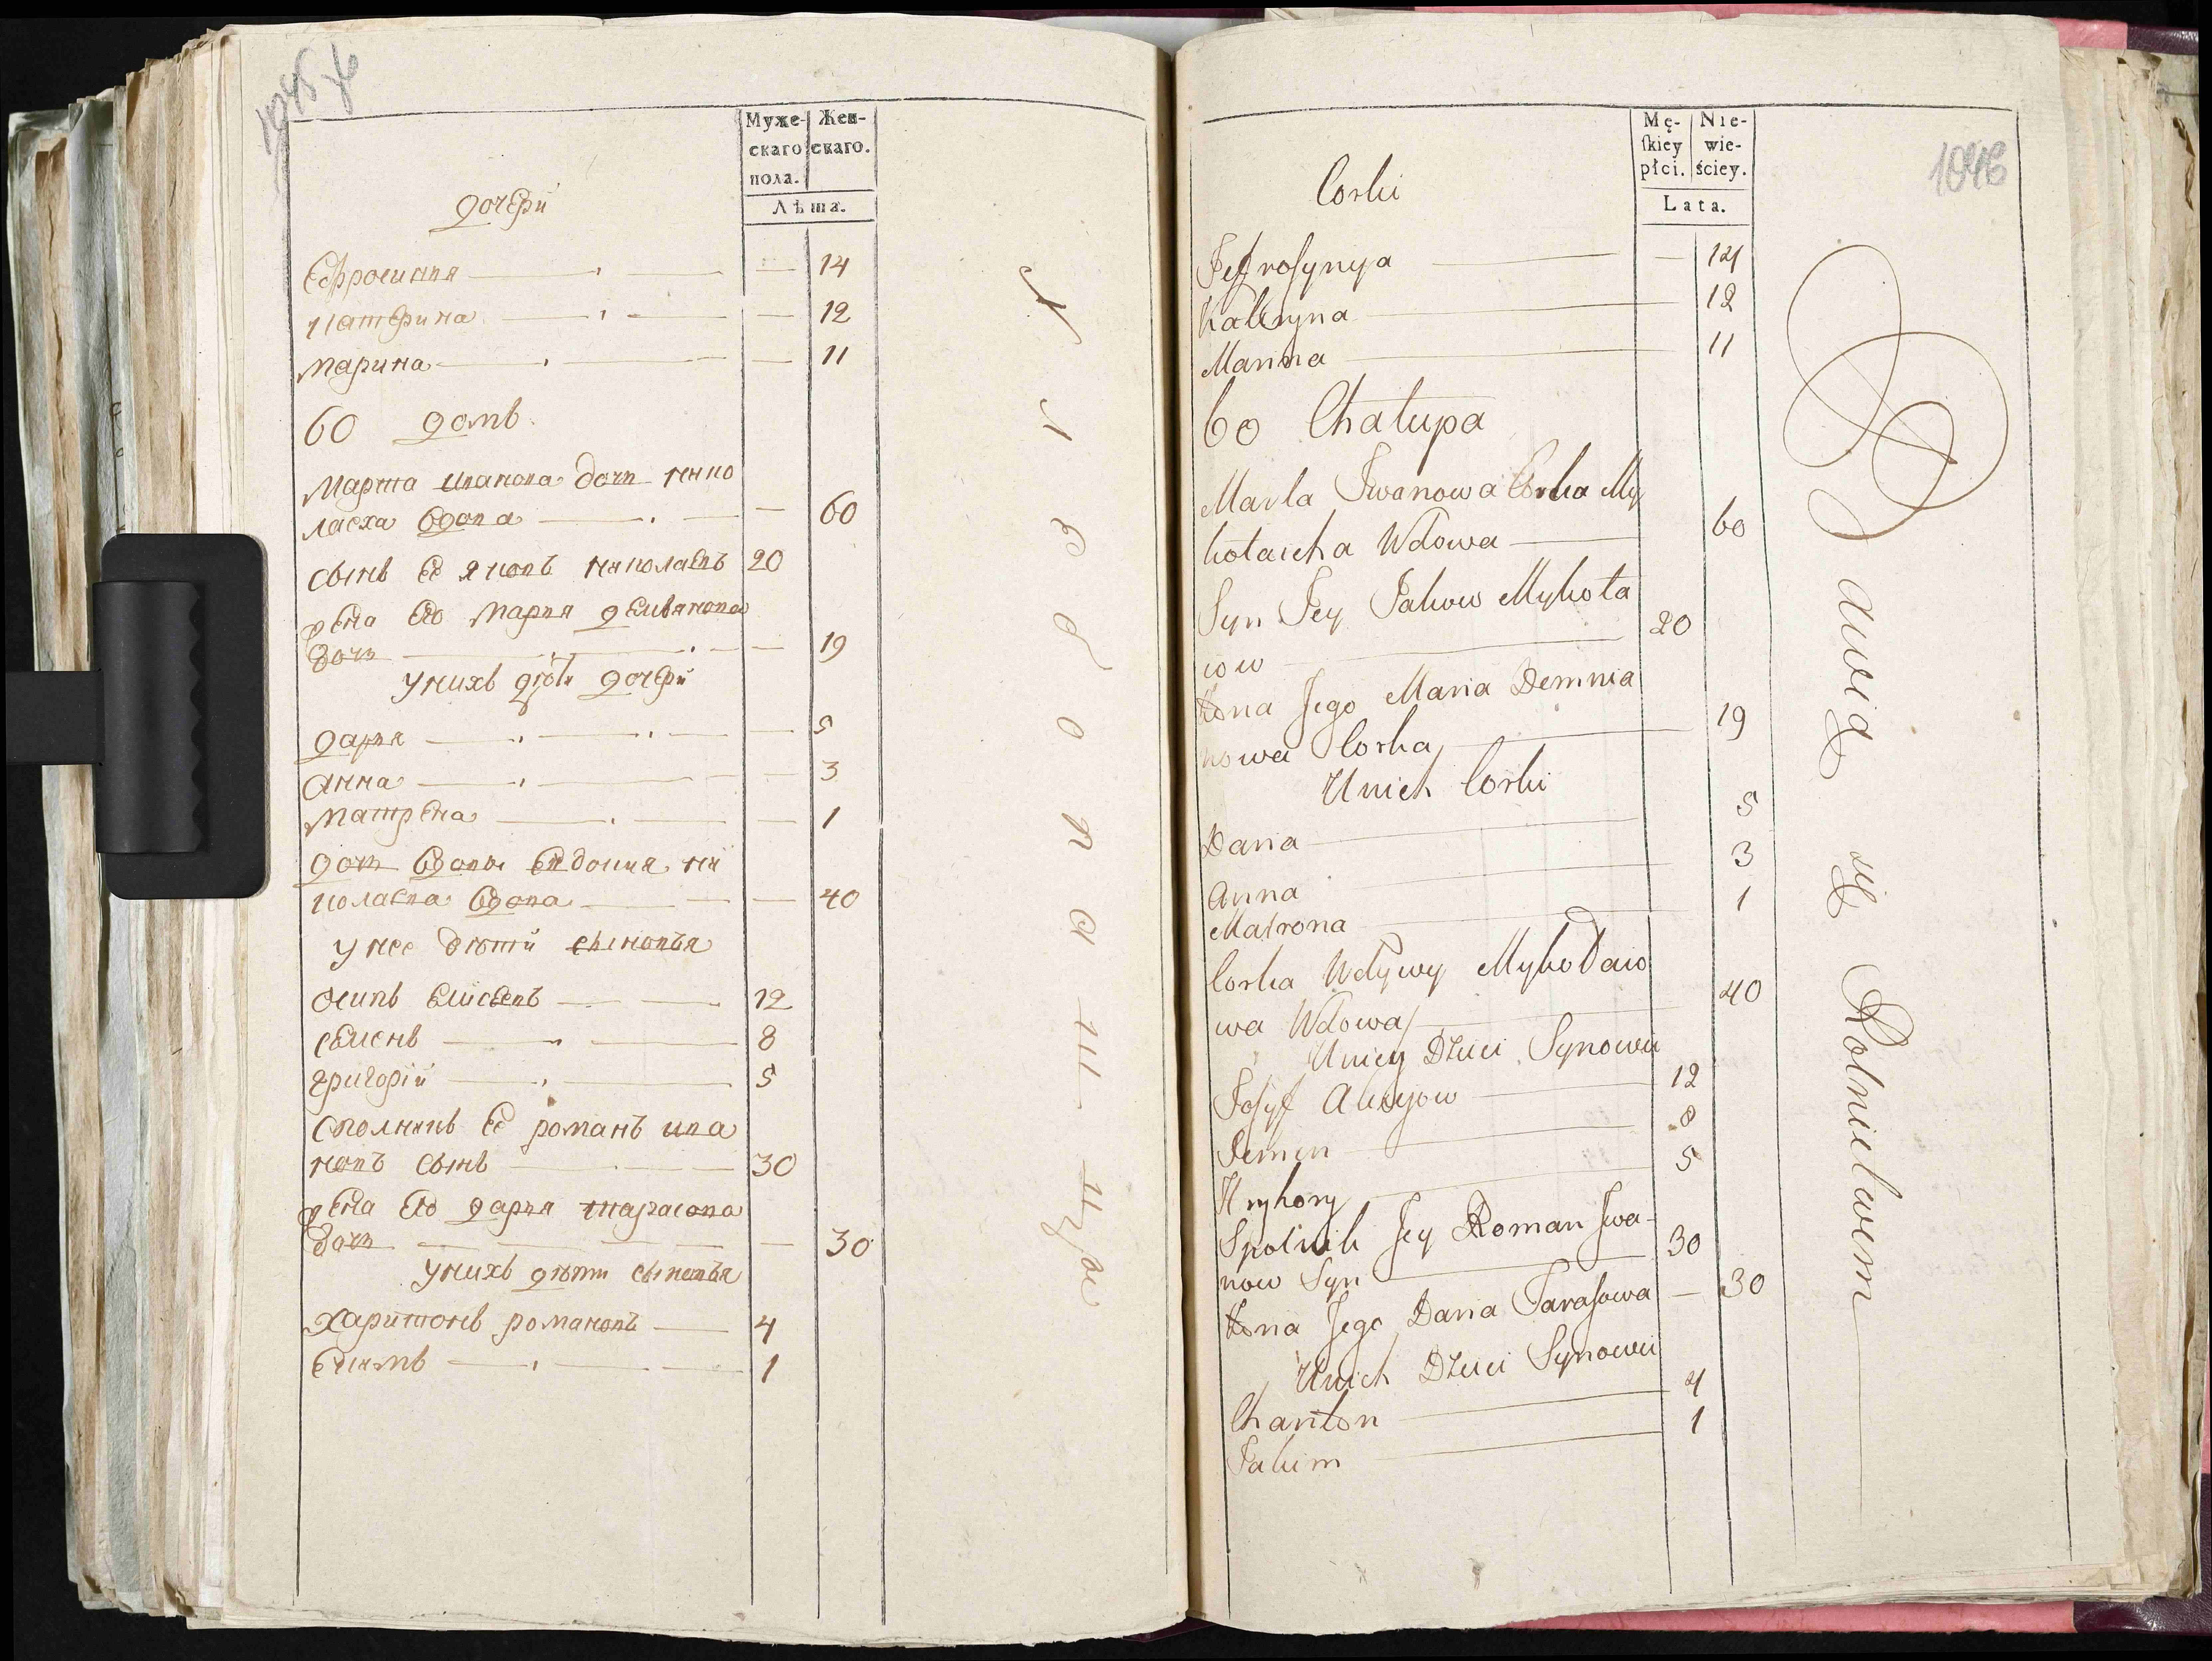 1045 об
Муже-
скаго
пола.
Жен-
скаго.
Лѣта.
дочери
Ефросинья — — — 14
Катерина — — — 12
Марина — — — 11
60 домъ
Марта иванова дочь мико
лаєха вдова — — — 60
Сынъ Ее яковъ миколаевъ 20
жена его Мария демьянова
дочь — — — 19
у нихъ дети дочери
дарья — — — 5
анна — — — 3
матрена — — — 1
дочь вдовы евдокия ми
колаева вдова — — — 40
у нее дѣти сыновья
осипъ — — 12
семенъ — — 8
григорій — — 5
Ее романъ ива
новъ сынъ — — 30
жена его дарья тарасова
дочь — — — 30
у нихъ дѣти сыновья
харитонъ романовъ — 4
Екимъ — — 1
1046
Mę-
ſkiey
płci.
Nie-
wie-
ściey.
Lata.
Corki
Jefrosynya — — 14
Kateryna — 12
Marina — 11
60 Chałupa
Marta Iwanowa Corka My
kołaicha Wdowa — 60
Syn Jey Jakow Mykoła
iow — 20
Żona Jego Maria Demnia
nowa Corka — 19
Unich Corki
Daria — 5
Anna — 3
Matrona — 1
Corka Wdywy Mykołaio
wa Wdowa — 40
Uniey Dzieci Synowie
Josyf — 12
Semen — 8
Hryhory — 5
Spolnik Jey Roman Iwa-
now Syn — 30
Żona Jego Daria Tarasowa — 30
Unich Dzieci Synowie
Chariton — 4
Jakim — 1
Bawią się Rolnictwem